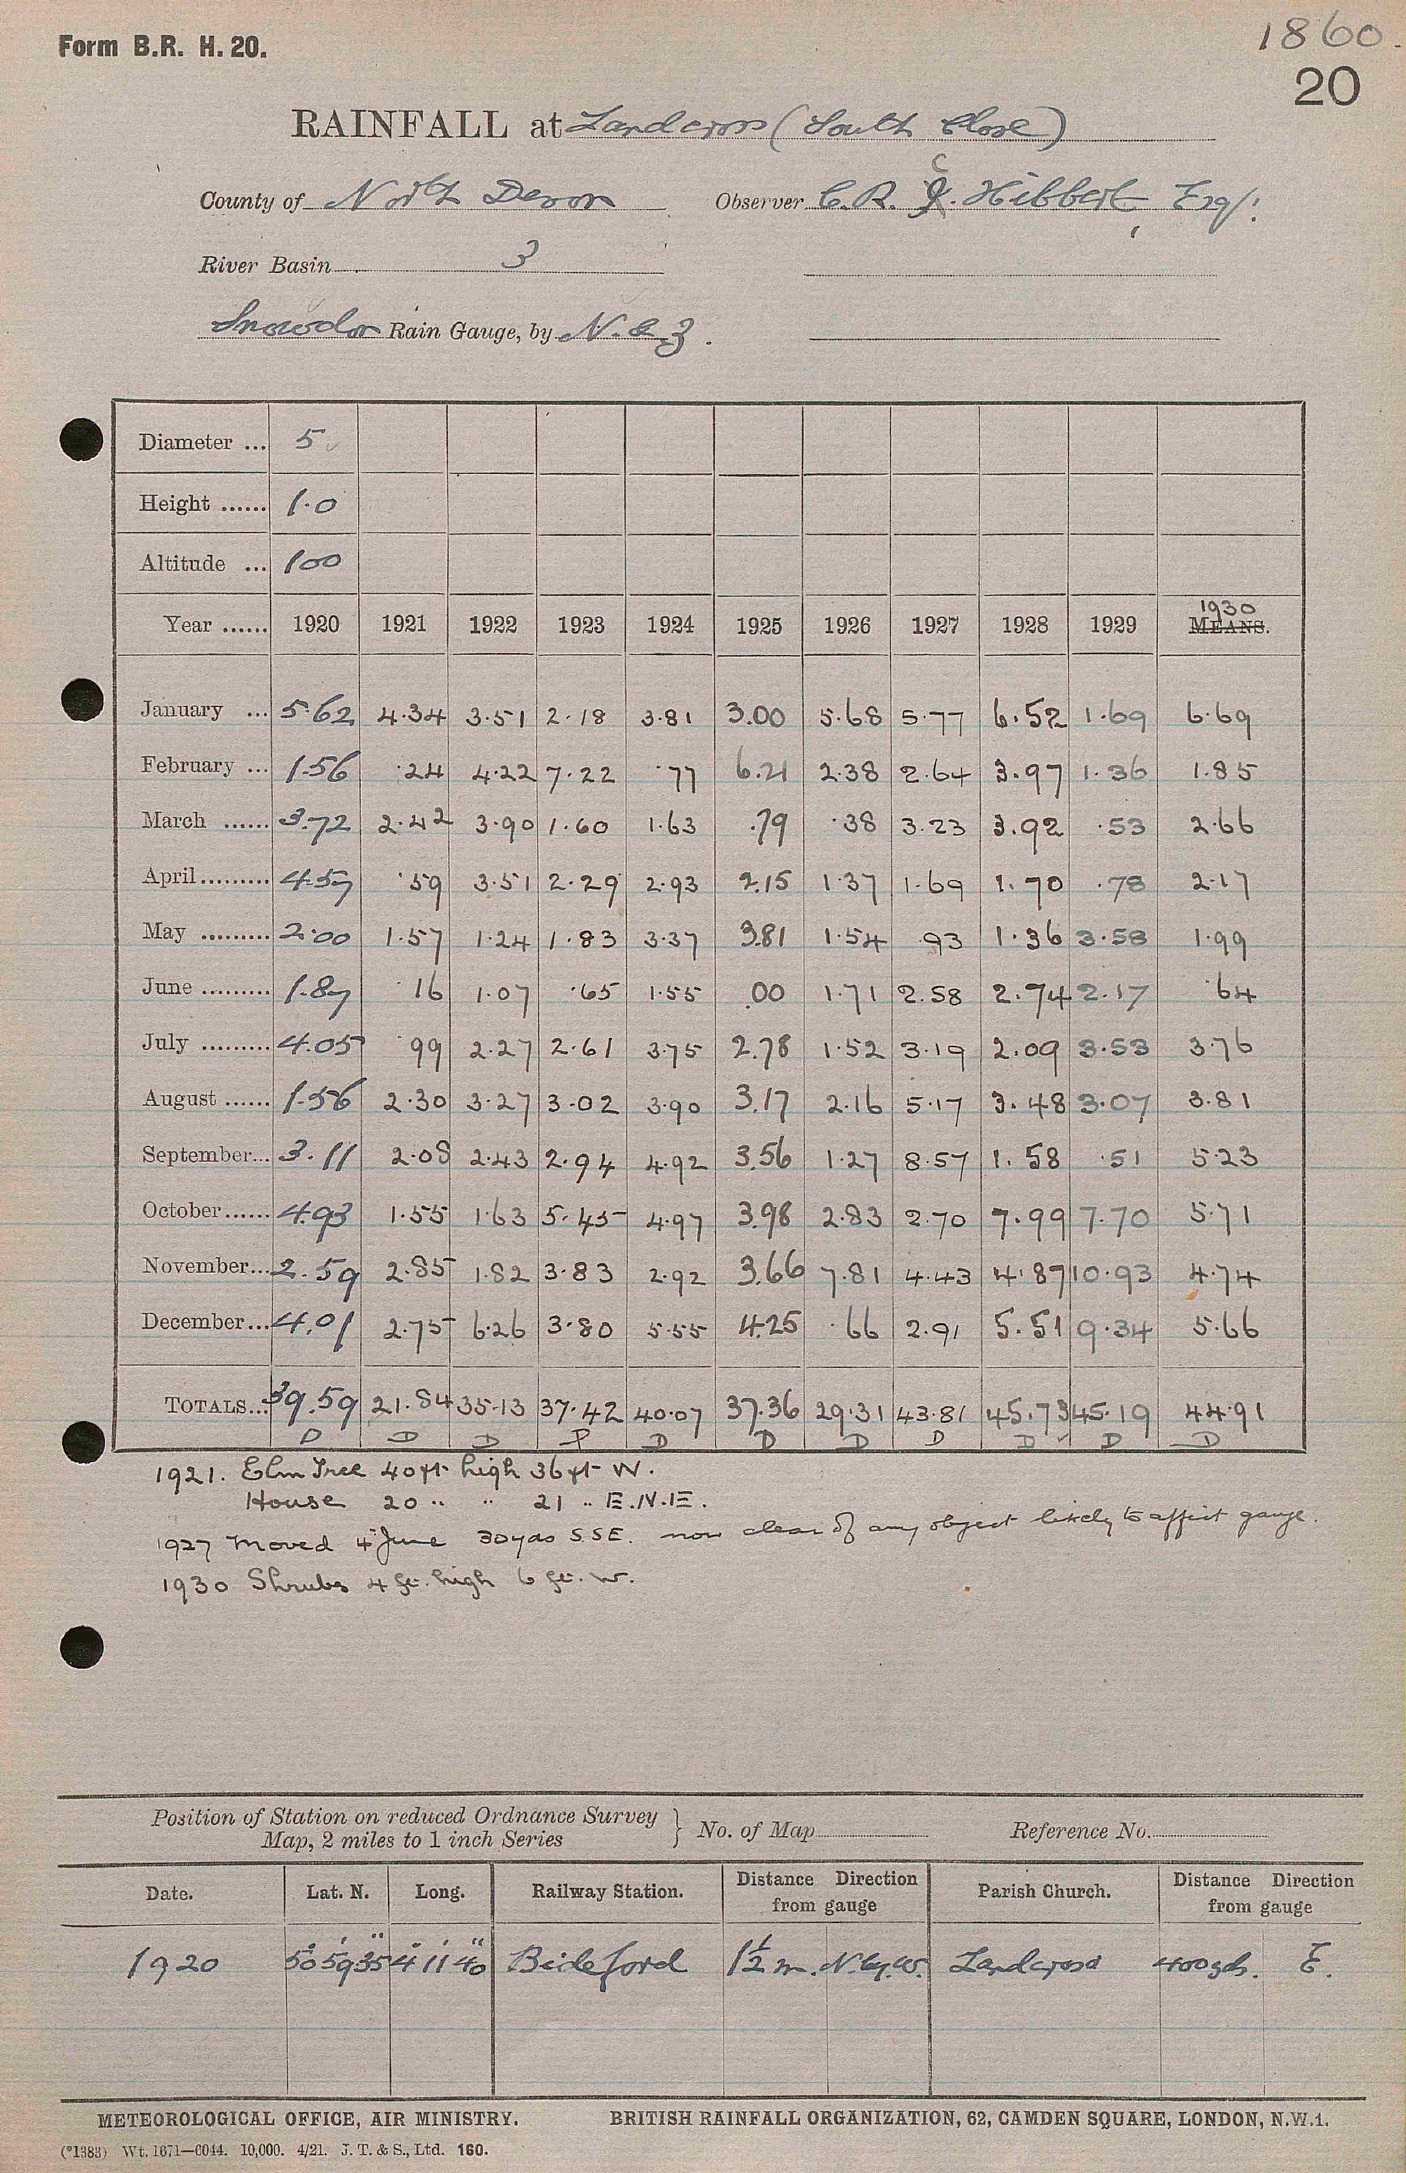 Form B.R. H. 20.
1860.
20
RAINFALL at Landcross (South Close)
County of North Devon Observer C. R. C. Hibbert, Esq.
River Basin 3
Snowdon Rain Gauge, by N. & Z.
Diameter ... 5
Height ...... 1.0
Altitude ... 100
Year ...... 1920 1921 1922 1923 1924 1925 1926 1927 1928 1929 1930 MEANS.
January ... 5.62 4.34 3.51 2.18 3.81 3.00 5.68 5.77 6.52 1.69 6.69
February ... 1.56 .24 4.22 7.22 .77 6.21 2.38 2.64 3.97 1.36 1.85
March ...... 3.72 2.42 3.90 1.60 1.63 .79 .38 3.23 3.92 .53 2.66
April......... 4.57 .59 3.51 2.29 2.93 2.15 1.37 1.69 1.70 .78 2.17
May ......... 2.00 1.57 1.24 1.83 3.37 3.81 1.54 .93 1.36 3.58 1.99
June ......... 1.87 .16 1.07 .65 1.55 .00 1.71 2.58 2.74 2.17 .64
July ......... 4.05 .99 2.27 2.61 3.75 2.78 1.52 3.19 2.09 3.53 3.76
August ...... 1.56 2.30 3.27 3.02 3.90 3.17 2.16 5.17 3.48 3.07 3.81
September... 3.11 2.08 2.43 2.94 4.92 3.56 1.27 8.57 1.58 .51 5.23
October...... 4.93 1.55 1.63 5.45 4.97 3.98 2.83 2.70 7.99 7.70 5.71
November... 2.59 2.85 1.82 3.83 2.92 3.66 7.81 4.43 4.87 10.93 4.74
December... 4.01 2.75 6.26 3.80 5.55 4.25 .66 2.91 5.51 9.34 5.66
TOTALS... 39.59 21.84 35.13 37.42 40.07 37.36 29.31 43.81 45.73 45.19 44.91
D D D P D D D D D D D
1921. Elm Tree 40 ft high 36 ft W.
House 20 " " 21 " E.N.E.
1927 Moved 4th June 30 yds S.S.E. now clear of any object likely to affect gauge.
1930 Shrubs 4 ft. high 6 ft. W.
Position of Station on reduced Ordnance Survey
Map, 2 miles to 1 inch Series } No. of Map Reference No.
Date. Lat. N. Long. Railway Station. Distance Direction from gauge Parish Church. Distance Direction from gauge
1920 50° 59' 35" 4° 11' 40" Bideford 1½ m. N. by W. Landcross 400 yds. E.
METEOROLOGICAL OFFICE, AIR MINISTRY. BRITISH RAINFALL ORGANIZATION, 62, CAMDEN SQUARE, LONDON, N.W.1.
(*1383) Wt. 1671—C044. 10,000. 4/21. J. T. & S., Ltd. 160.